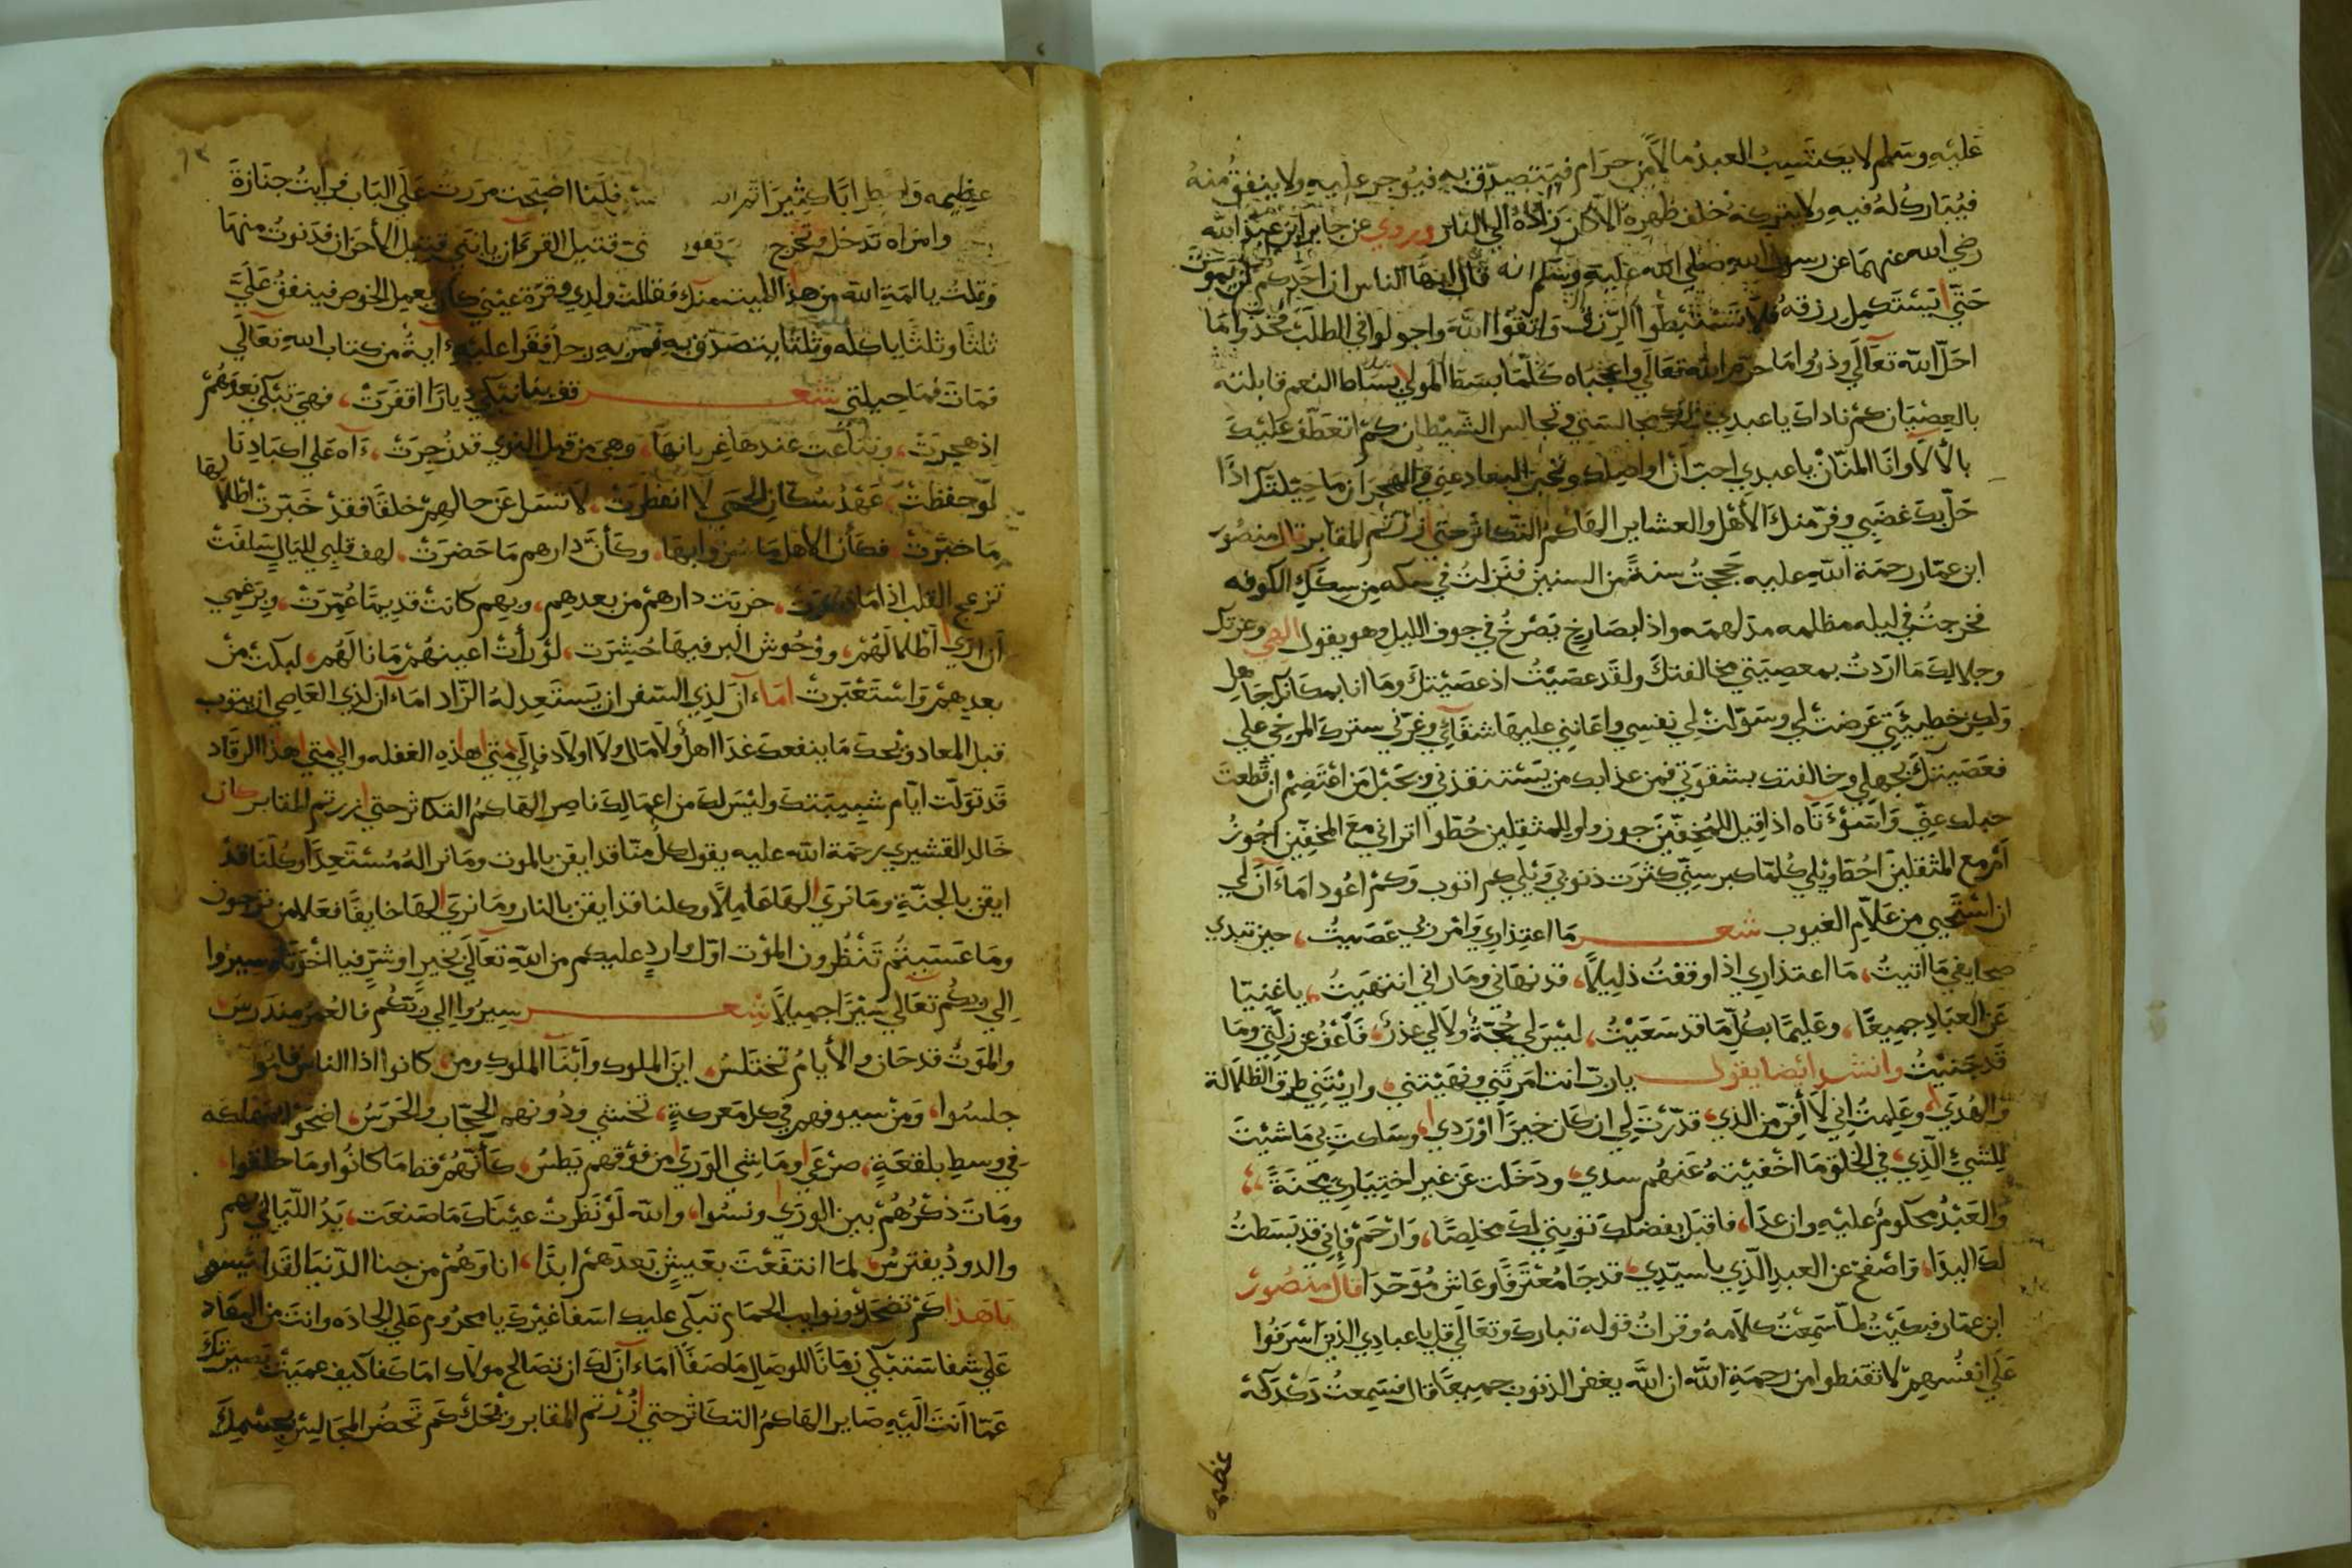 عليه وسلم لا يكتسب العبد مالاً من حرام فيتصدق به فيوجر عليه ولا ينفق منه
فيبارك له فيه ولا يتركه خلف ظهره الا كان زاده الي النار وروي عن جابر ابن عبد الله
رضي الله عنهما عن رسول الله صلي الله عليه وسلم انه قال ايها الناس ان احدكم لن يموت
حتي يستكمل رزقه فلا تستبطوا الرزق واتقوا الله واجملوا في الطلب خذوا ما
احل الله تعالي وذروا ما حرم الله تعالي واعجباه كلما بسط المولي بساط النعم قابلته
بالعصيان كم ناداك يا عبدي مجالستي وتجالس الشيطان كم اتعطف عليك
بالألا وانا المنان يا عبدي احب ان اواصلك وتحب البعاد عني والهجران ما حيلتك اذا
حل بك غضبي وفر منك الأهل والعشاير الهاكم التكاثر حتي زرتم المقابر قال منصور
ابن عمار رحمة الله عليه حججت سنة من السنين فنزلت في سكه من سكك الكوفه
فخرجت في ليله مظلمه مدلهمه واذا بصارخ يصرخ في جوف الليل وهو يقول الهي وعزتك
وجلالك ما اردت بمعصيتي مخالفتك ولقد عصيت اذ عصيتك وما انا بمكانك جاهل
ولكن خطيئتي عرضت لي وسولت لي نفسي واعانني عليها شقآئي وغرني سترك المرخي علي
فعصيتك بجهلي وخالفتك بشقوتي فمن عذابك من يستنقذني وبحبل من اعتصم ان قطعت
حبلك عني واسوءتاه اذا قيل للمخفين جوزوا وللمثقلين حطوا اتراني مع المخفين اجوز
أم مع المثقلين احط ويلي كلما كبر سني كثرت ذنوبي ويلي كم اتوب وكم اعود اماء ان لي
ان استحيي من علام الغيوب شعر ما اعتذاري وامر ربي عصيت، حين تبدي
صحايفي ما اتيت، ما اعتذاري اذا وقفت ذليلاً، قد نهاني وما راني انتهيت، يا غنيا
عن العباد جميعًا، وعليما بكل ما قد سعيت، ليس لي حجة ولا لي عذر، فأعف عن زلتي وما
قد جنيت وانشد ايضا يقول يارب انت امرتني ونهيتني، واريتني طرق الظلالة
والهدي، وعلمت اني لا أفر من الذي، قدرت لي ان كان خيراً او ردي، وسلكت بي ما شيت
للشيء الذي، في الخلق ما اخفيته عنهم سدي، ودخلت عن غير اختياري محنة،
والعبد محكوم عليه وان عدا، فاقبل بفضلك توبتي لك مخلصًا، وارحم فإني قد بسطت
لك اليدا، واصفح عن العبد الذي يا سيدي، قد جا معترفًا وعاش موحدا قال منصور
ابن عمار فبكيت لما سمعت كلامه وقرات قوله تبارك وتعالي قل يا عبادي الذين اسرفوا
علي انفسهم لا تقنطوا من رحمة الله ان الله يغفر الذنوب جميعًا قال فسمعت دكدكة
عظيمه
٩٣
عظيمه واضطرابًا كثيرا فلما اصبحت مررت علي الباب فرايت جنازة
وامراه تدخل وتخرج قتيل القرءان يا بني قتيل الأحزان فدنوت منها
وقلت يا امة الله من هذا الميت منك فقالت ولدي وقرة عيني كان يعمل الخوص فينفق علي
ثلثا وثلثا ياكله وثلثا يتصدق به فمر به رجل فقرا عليه ءاية من كتاب الله تعالي
فمات فما حيلتي شعر قف بنا نبكي ديارا اقفرت، فهي تبكي بعدهم
اذ هجرت، وتناعت عندها غربانها، وهي من قبل النوي قد زجرت، ءاه علي اكبادنا
لو حفظت، عهد سكان الحمي لا انفطرت، لا تسل عن حالهم خلقا فقد خبرت اطلالها
ما خبرت، فكأن الأهل ما سروا بها، وكأن دارهم ما حضرت، لهف قلبي لليال سلفت
تزعج القلب اذا ما، خربت دارهم من بعدهم، وبهم كانت قديما عمرت، وبرغمي
أن اري أطلالهم، ووحوش البر فيها حشرت، لو رأت اعينهم ما نالهم، لبكت من
بعدهم واستعبرت اماء آن لذي السفر ان يستعد له الزاد اماء آن لذي العاصي ان يتوب
قبل المعاد ويحك ما ينفعك غدا اهل ولا مال ولا اولاد فإلي متي هذه الغفله والي متي هذا الرقاد
قد تولت ايام شبيبتك وليس لك من اعمالك ناصر الهاكم التكاثر حتي زرتم المقابر كان
خالد القشيري رحمة الله عليه يقول كل منا قد ايقن بالموت وما نرا له مستعدا وكلنا قد
ايقن بالجنة وما نري لها عاملاً وكلنا قد ايقن بالنار وما نري لها خايفًا فعلام ترجون
وما عسيتم تنظرون الموت اول وارد عليكم من الله تعالي بخير او شر فيا اخوتاه سيروا
الي ربكم تعالي سيرًا جميلاً شعر سيروا الي ربكم فالعمر مندرس
والموت قد حان والأيام تختلس، اين الملوك وأبنآ الملوك ومن، كانوا اذا الناس قاموا
جلسوا، ومن سيوفهم في كل معركة، تخشي ودونهم الحجاب والحرس، اضحوا بمهلكة
في وسط بلقعة، صرعي وماشي الوري من فوقهم يطس، كأنهم قط ما كانوا وما خلقوا،
ومات ذكرهم بين الوري ونسوا، والله لو نظرت عيناك ما صنعت، يد الليالي بهم
والدود يفترس، لما انتفعت بعيش بعدهم ابدًا، انا وهم من جنا الدنيا لقد ائيسو
يا هذا كم تضحك ونوايب الحمام تبكي عليك اسفا غيرك يا محروم علي الجاده وانت من البعاد
علي شفا ستبكي زمانًا للوصال ما صفا أماء آن لك ان تصالح مولاك اما كفا كيف عميت بصيرتك
عما انت اليه صاير الهاكم التكاثر حتي زرتم المقابر ويحك كم تحضر المجالس بجسمك